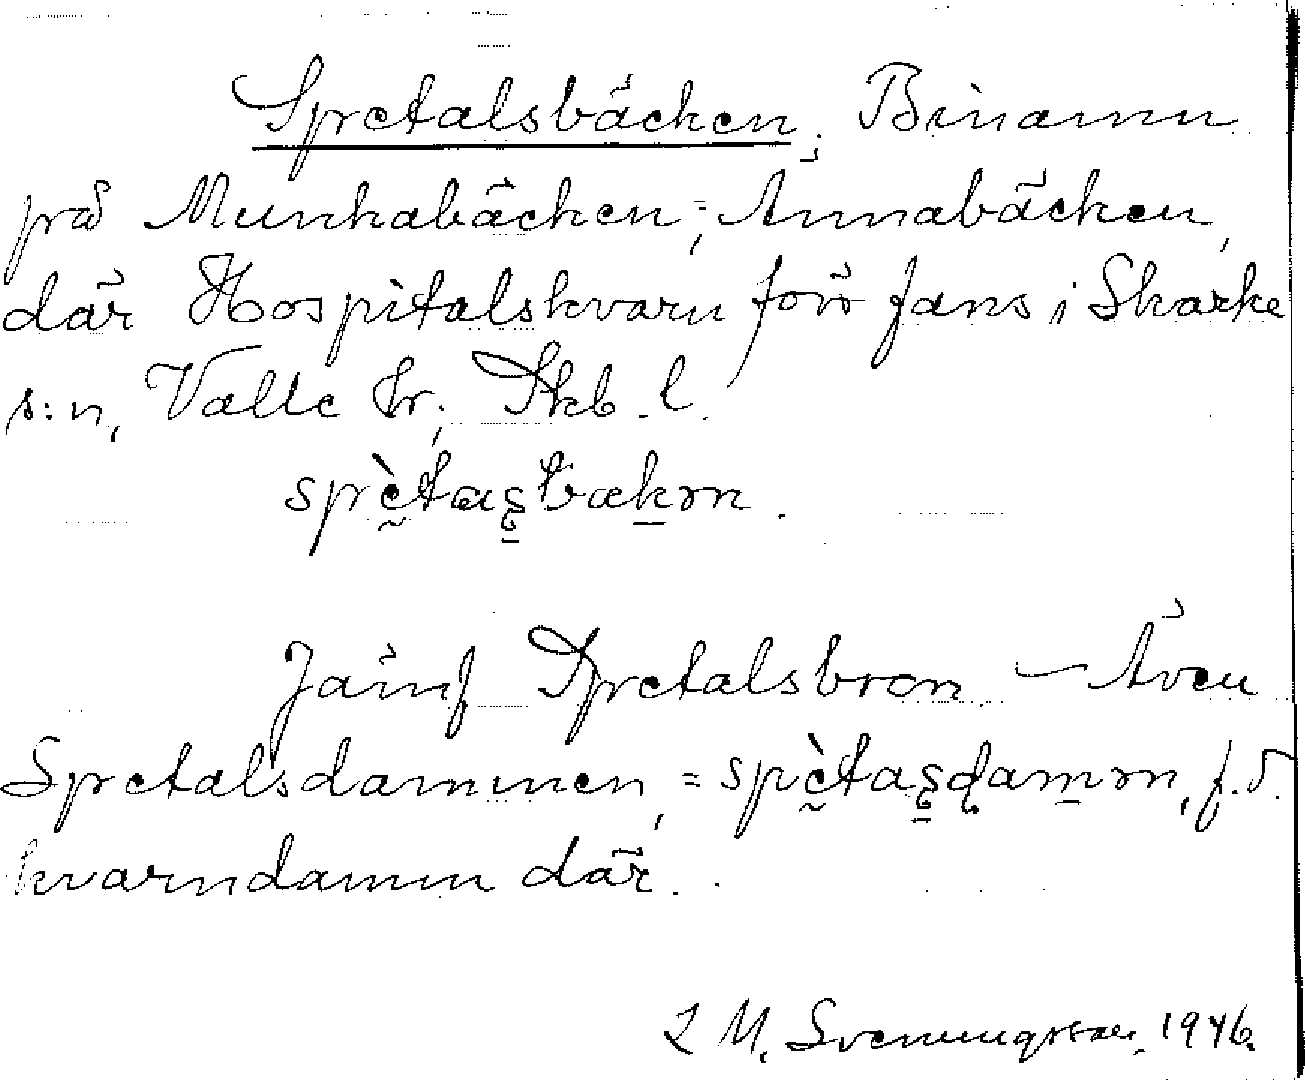 Spretalsbäcken, Binamn
på Munkabäcken, = Annabäcken,
där Hospitalskvarn förr fans i Skärke
s:n, Valle hr, Skb. l.
sprètaʂbækɔn.
Jämf Spretalsbron. — Även
Spretalsdammen, = spètaʂɖamɔn, f.d.
kvarndamm där.
L M. Svenungsson, 1946.